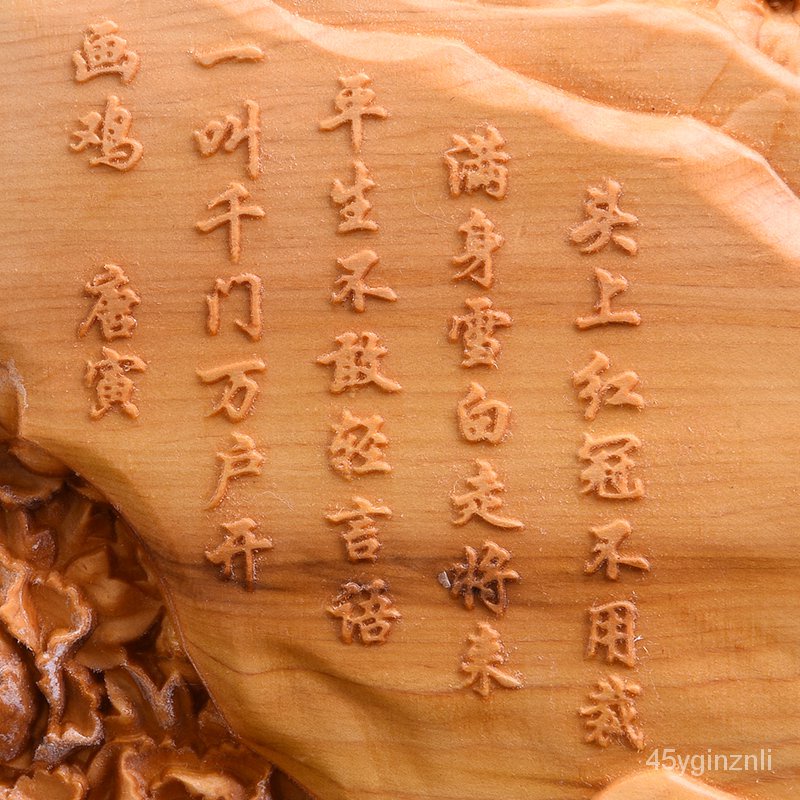 头上红冠不用裁
满身雪白走将来
平生不敢轻言语
一叫千门万户开
画鸡 唐寅
45yginznli